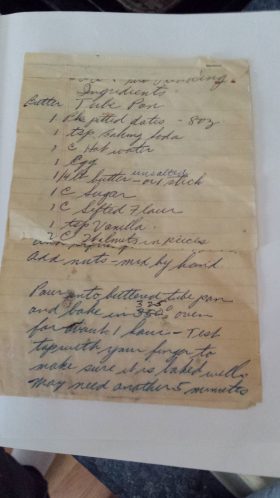 Pudding.
Ingredients
Butter Tube Pan
1 Pk pitted dates - 8oz
1 tsp. baking soda
1 C Hot water
1 Egg
unsalted
1/4 lb butter - one stick
1 C Sugar
1 C Sifted Flour
1 tsp Vanilla
C in pieces
add nuts - mix by hand
Pour into buttered tube pan
325
and bake in 350° oven
for about 1 hour - Test
top with your finger to
make sure it is baked well.
may need another 5 minutes